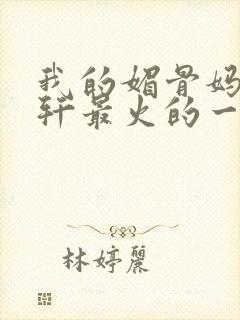 我的媚骨妈
轩最火的一
林婷丽